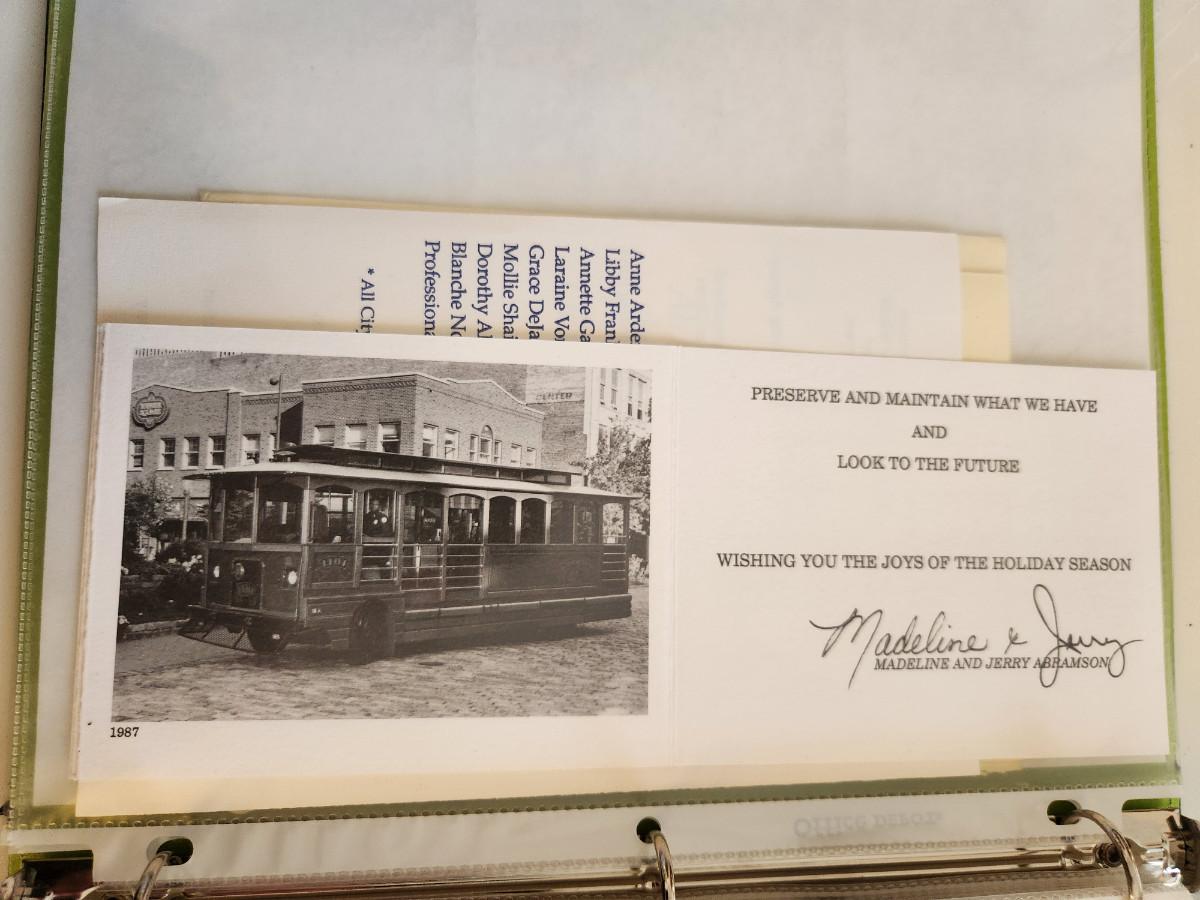 Anne Arde
Libby Fran
Annette Ga
Laraine Vo
Grace DeJa
Mollie Shai
Dorothy Al
Blanche No
Professiona
* All City
CENTER
1101
1987
PRESERVE AND MAINTAIN WHAT WE HAVE
AND
LOOK TO THE FUTURE
WISHING YOU THE JOYS OF THE HOLIDAY SEASON
Madeline & Jerry
MADELINE AND JERRY ABRAMSON
Office DEPOT